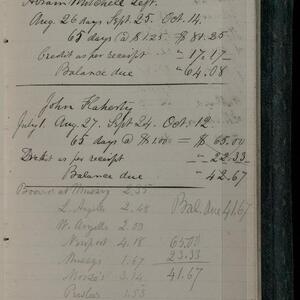 Abram Mitchell Dept.
Aug. 26 days Sept. 25. Oct. 14
65 days @ $1.25 $81.25
Credit as per receipt " 17.17
Balance due " 64.08
John Flaherty
July 1. Aug. 27. Sept 24. Oct. 12
65 days @ $1.00 = $65.00
as per receipt " 22.33
Balance due " 42.67
at 2.35
L. 2.48 Bal. due 41.67
W. 2.03
Newport 4.18 65.00
1.67 23.33
3.14 41.67
1.53